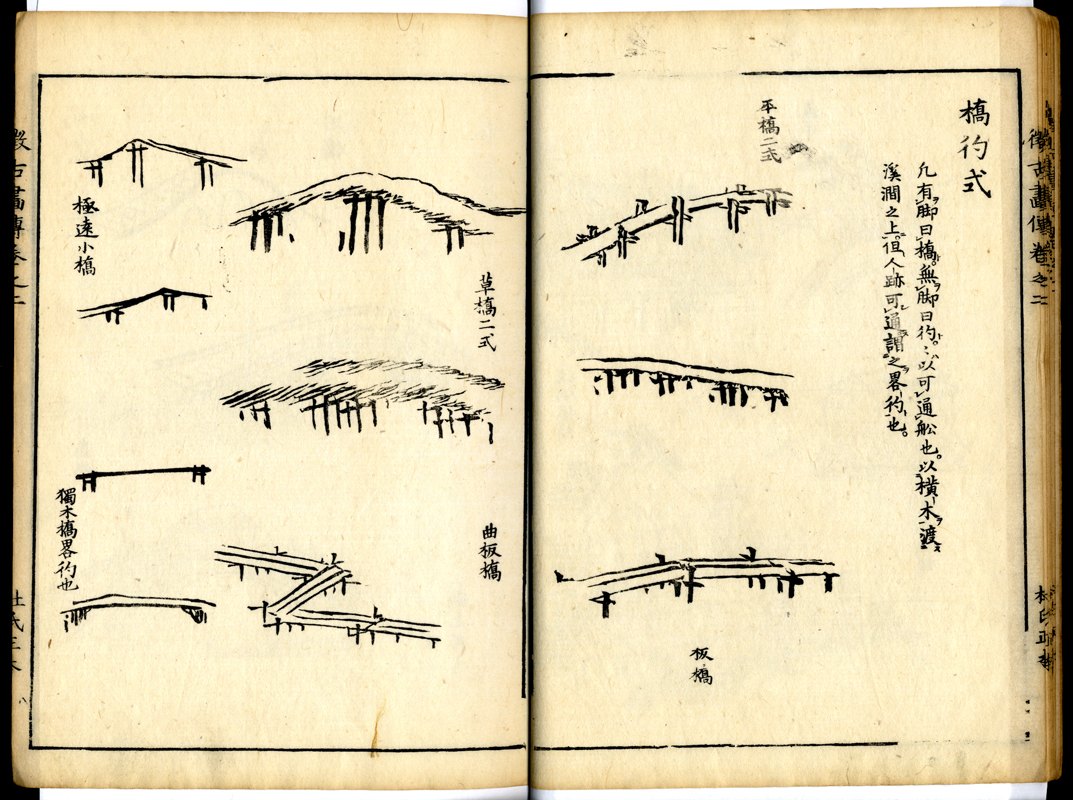 徴古畫傳卷之二
橋彴式
凢有脚曰橋。無脚曰彴。〻以可通舩也。以横木渡
溪澗之上。但人跡可通謂之畧彴也。
平橋二式
板橋
草橋二式
曲板橋
極遠小橋
獨木橋畧彴也